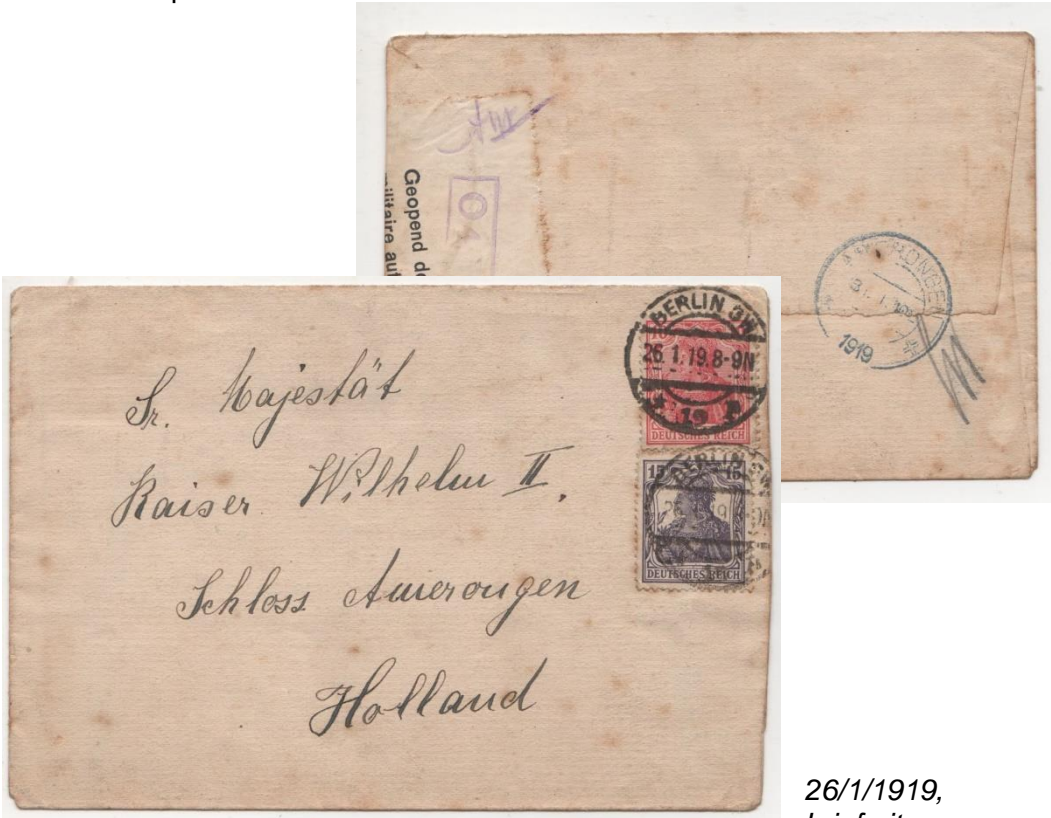 Geopend
militaire
OA
AMERONGEN
31.1.19
1919
BERLIN SW
26.1.19.8-9N
* 19
DEUTSCHES REICH
15 15
BERLIN SW
DEUTSCHES REICH
Sr. Majestät
Kaiser Wilhelm II.
Schloss Amerongen
Holland
26/1/1919,